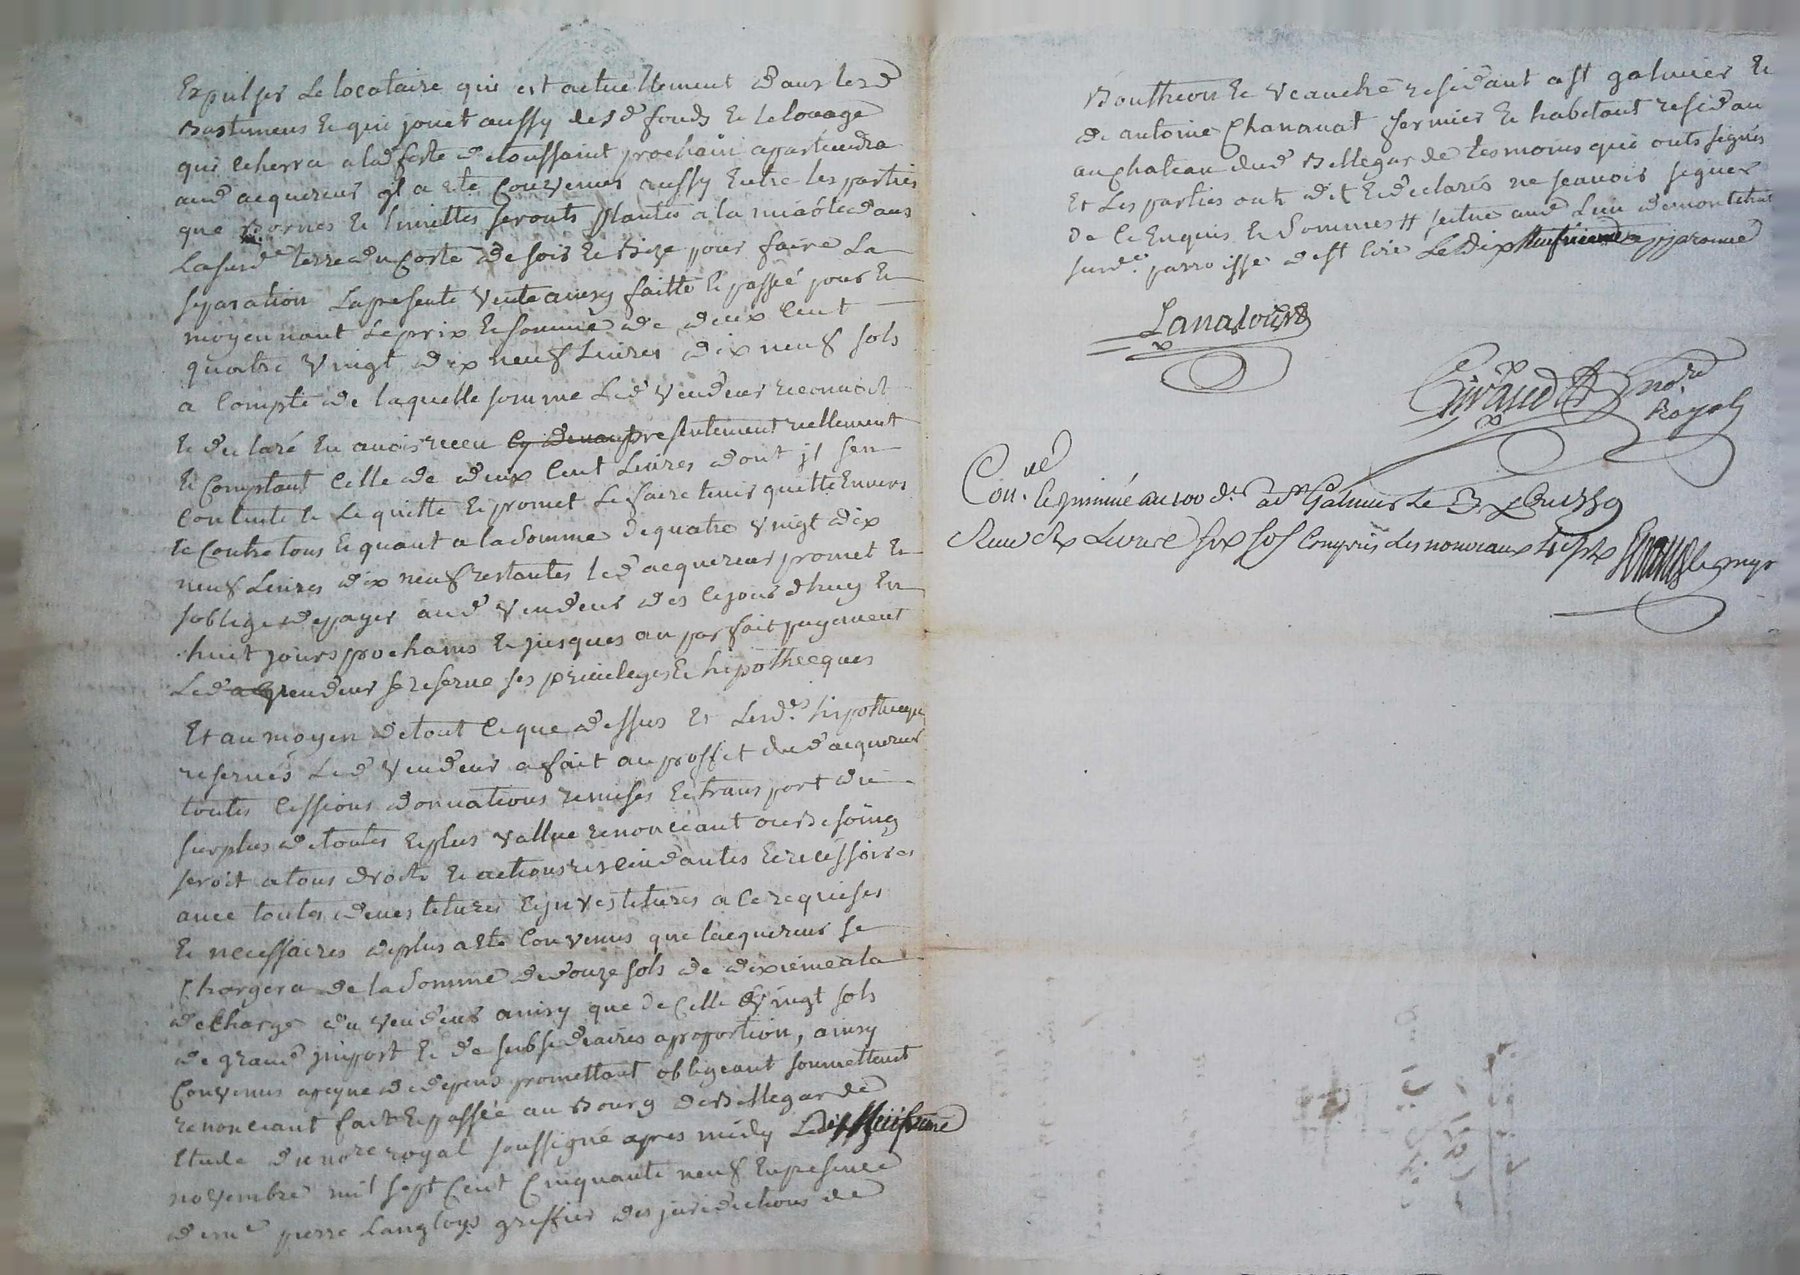 Expulser Le locataire qui est actuellement dans lesd
Bastimens & qui jouit aussy desd fonds & Le louage
qui echerra a lad feste de toussaint prochain appartiendra
aud acquereur jl a ete Convenus aussy Entre les parties
que Bornes & limittes seronts plantés a la dans
Lasusd.e terre du Costé de soir & Bize pour faire La
separation La presente Vente ainsy faitte & passée pour &
moyennant Le prix & somme de deux Cent
quatre Vingt dix neuf Livres dix neuf sols
a Compte de laquelle somme Led Vendeur reconnoit
& declaré En avoir receu presentement reellement
& Comptant Celle de deux Cent Livres dont jl sen
Contente & Le quitte & promet Le faire tenir quitte Envers
& Contre tous & quant a la somme de quatre Vingt dix
neuf Livres dix neuf restantes led acquereur promet &
soblige de payer aud Vendeur des Cejourdhuy En
huit jours prochains & jusques au parfait payement
Led vendeur se reserve ses privileges & hipotheques
Et au moyen de tout Ce que dessus Et Lesd.s hipotheques
reservés Led Vendeur a fait au proffit dud acquereur
toutes Cessions donnations remises & transport du
surplus de toutes & plus Vallue renonceant ou Besoing
seroit a tous droits & actions rescindantes & recissoires
avec toutes devestitures & jnvestitures a Ce requises
& necessaires de plus a ete Convenus que lacquereur se
Chargera de la somme de douze sols de dixieme a la
decharge du Vendeur ainsy que de Celle de Vingt sols
de grand jmpost & de subsidiaires a proportion, ainsy
Convenus a peyne de depens promettant obligeant soumettant
renonceant fait & passée au Bourg de Bellegarde
Etude du no.re royal soussigné apres midy Le
novembre mil sept Cent Cinquante neuf En presence
de me pierre Langloys greffier des juridictions de
Boutheon & Veauche residant a st galmier &
de antoine Chananat fermier & habitant residan
au Chateau dud Bellegarde tesmoins qui onts signés
Et Les parties ont dit & declarés ne scavoir signer
de Ce Enquis & Sommes scitue aud Lieu
susd.e parroisse d est Cire Le dix approuvé
Giraud no.re
Royal
Con.lé & jnsinué au 100 d.r a St Galmier Le
Receu dix Livre six sols Compris Les nouveaux